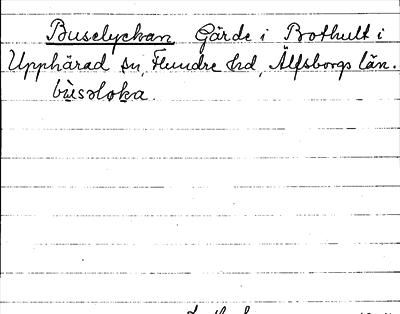 Buselyckan Gärde i Bothult i
Upphärad sn, Flundre hd, Älfsborgs län.
bùsəlɷka.